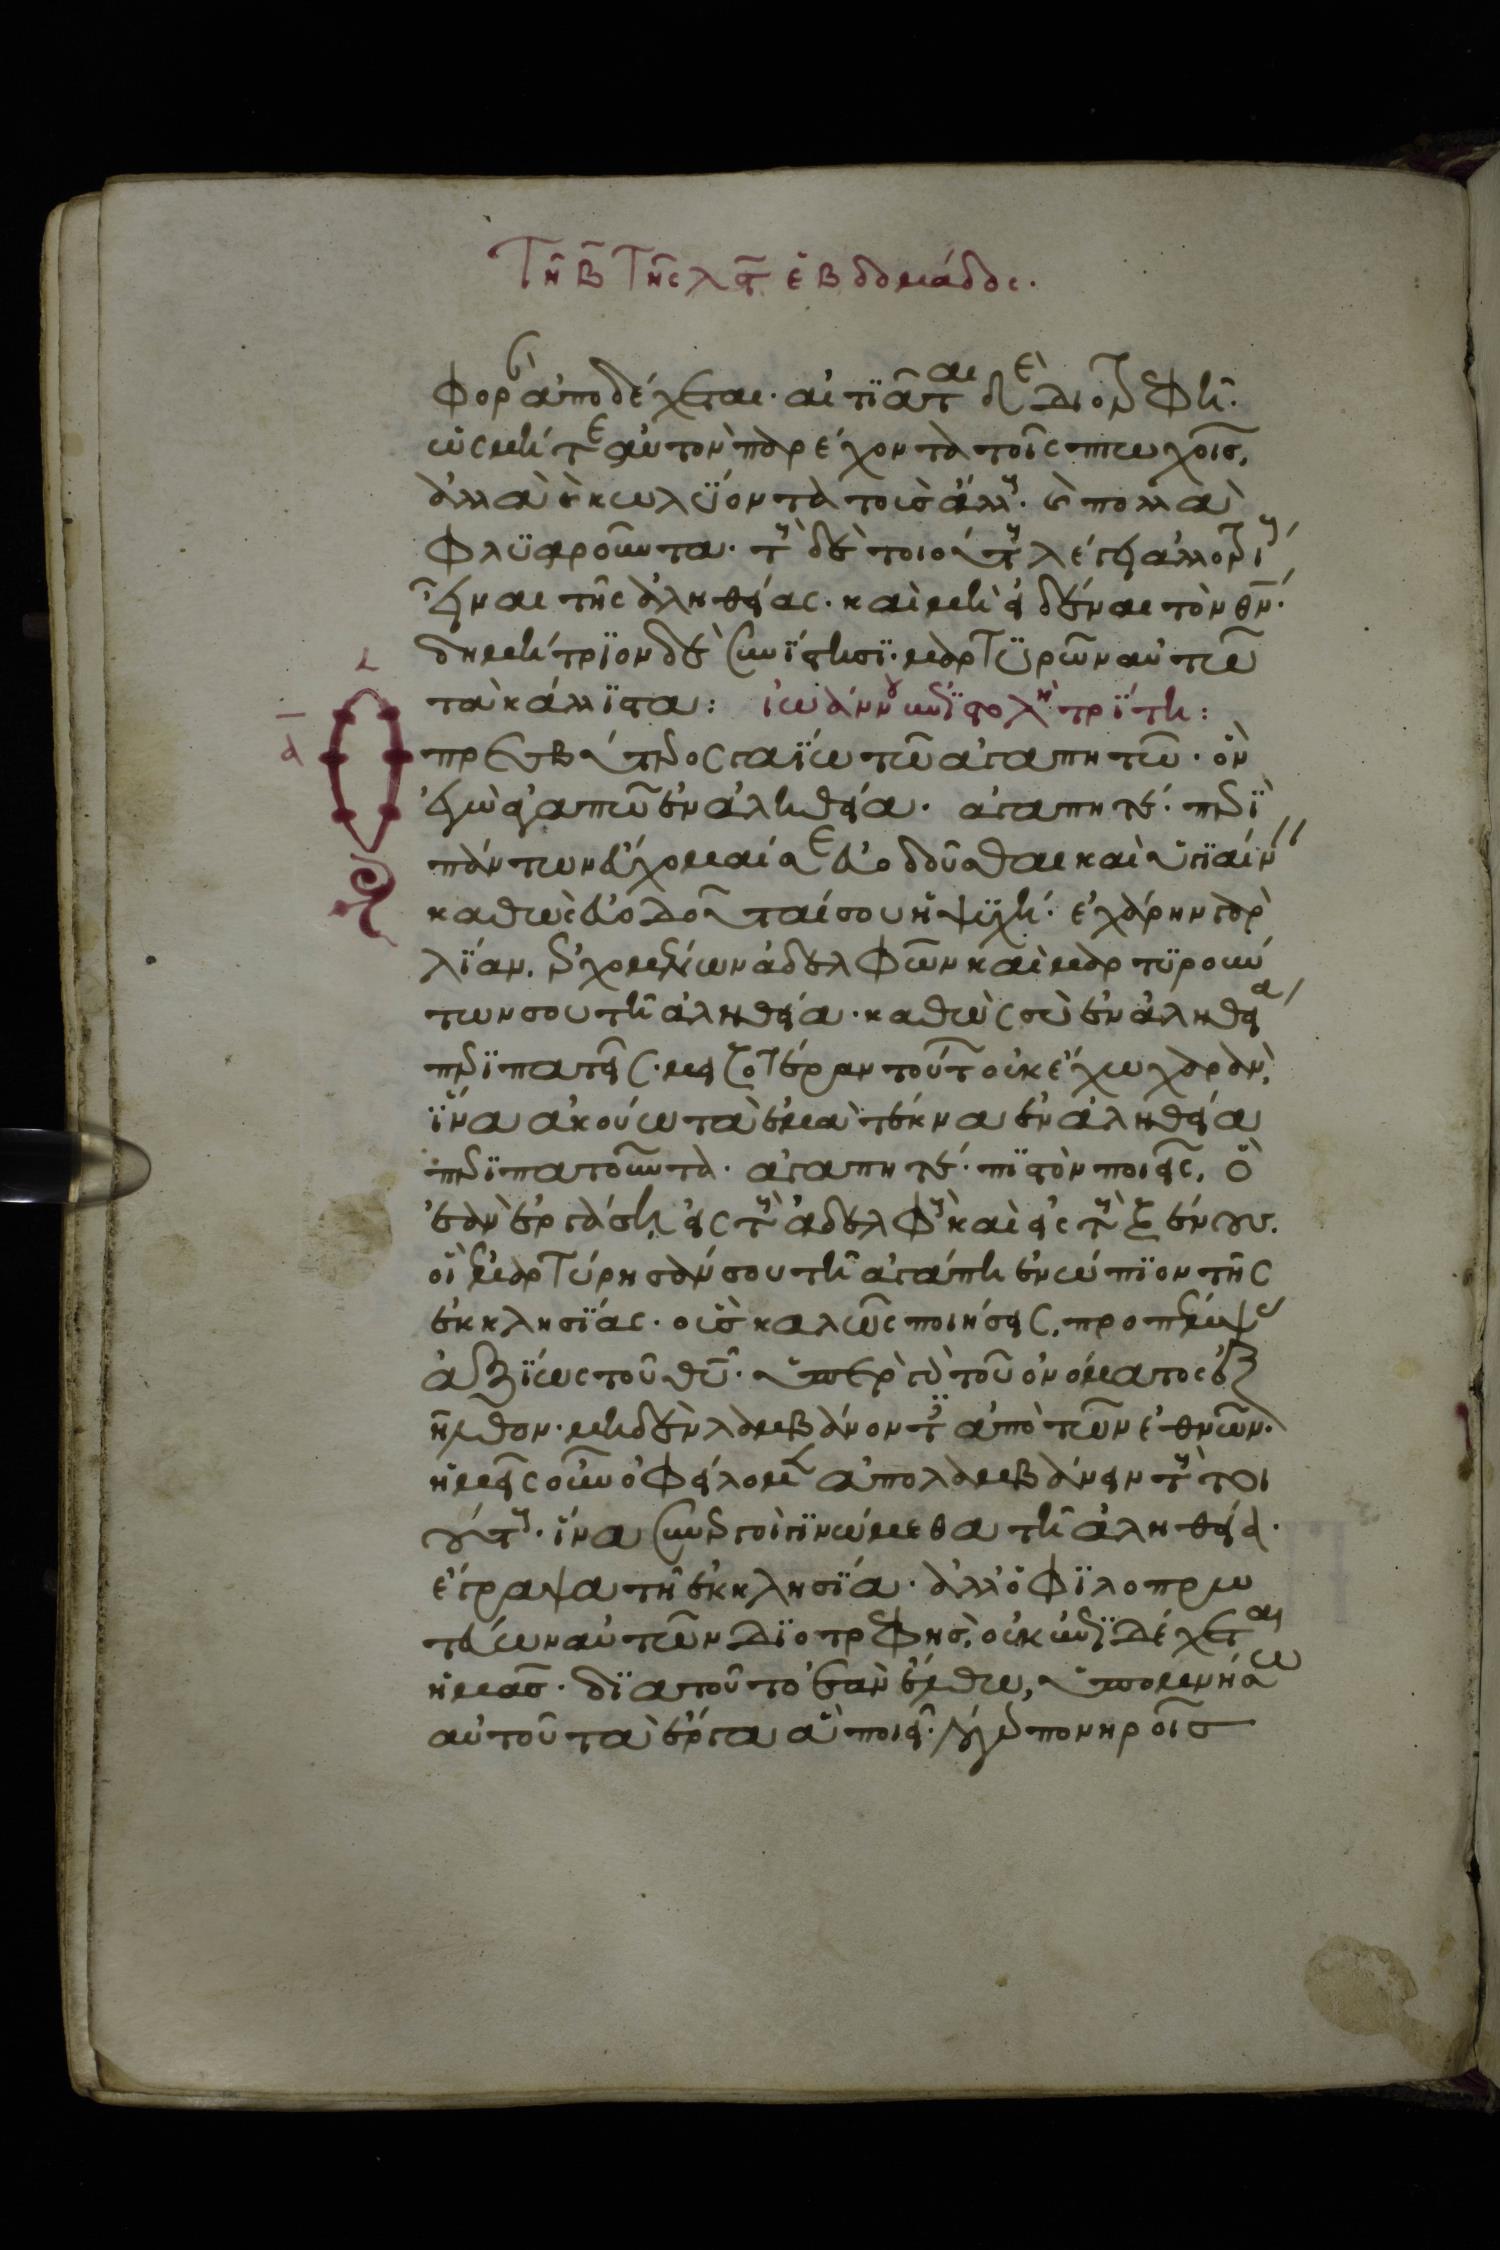 Τῆ β̅ Τῆς λς̅ ἑβδομάδος.
φορεῖ ἀποδέχεται· αἰτιᾶται δὲ Διοτρεφῆ·
ὡς μήτε αὐτὸν παρέχοντα τοῖς πτωχοῖς,
ἀλλὰ καὶ κωλύοντα τοὺς ἄλλους· καὶ πολλὰ
φλυαροῦντα· τοὺς δὲ τοιούτους λέγει ἀλλοτρίους
εἶναι τῆς ἀληθείας· καὶ μὴ εἰδέναι τὸν θν̅·
δημήτριον δὲ συνίστησι· μαρτυρῶν αὐτῶ
τὰ κάλλιστα: ἰωάννου ἐπιστολὴ τρίτη:
α̅
Ο πρεσβύτερος γαΐω τῶ ἀγαπητῶ· ὃν
ἐγὼ ἀγαπῶ ἐν ἀληθεία· ἀγαπητέ· περὶ
πάντων εὔχομαί σε εὐοδοῦσθαι καὶ ὑγιαίνειν
καθὼς εὐοδοῦταί σου ἡ ψυχή· ἐχάρην γὰρ
λίαν, ἐρχομένων ἀδελφῶν καὶ μαρτυρούν
των σου τῆ ἀληθεία· καθὼς σὺ ἐν ἀληθεία
περιπατεῖς· μειζοτέραν τούτων οὐκ ἔχω χαράν,
ἵνα ἀκούω τὰ ἐμὰ τέκνα ἐν ἀληθεία
περιπατοῦντα· ἀγαπητέ· πιστὸν ποιεῖς, ὃ
ἐὰν ἐργάση εἰς τοὺς ἀδελφοὺς καὶ εἰς τοὺς ξένους.
οἳ ἐμαρτύρησάν σου τῆ ἀγάπη ἐνώπιον τῆς
ἐκκλησίας· οὓς καλῶς ποιήσεις, προπέμψας
ἀξίως τοῦ θυ̅· ὑπὲρ γὰρ τοῦ ὀνόματος ἐξ
ῆλθον· μηδὲν λαμβάνοντες ἀπὸ τῶν ἐθνῶν·
ἡμεῖς οὖν ὀφείλομεν ἀπολαμβάνειν τοὺς τοι
ούτους· ἵνα συνεργοὶ γινώμεθα τῆ ἀληθεία·
ἔγραψα τῆ ἐκκλησία· ἀλλ' ὁ φιλοπρω
τεύων αὐτῶν Διοτρεφής, οὐκ ἐπιδέχεται
ἡμᾶς· διατοῦτο ἐὰν ἔλθω, ὑπομνήσω
αὐτοῦ τὰ ἔργα ἃ ποιεῖ· λόγοις πονηροῖς